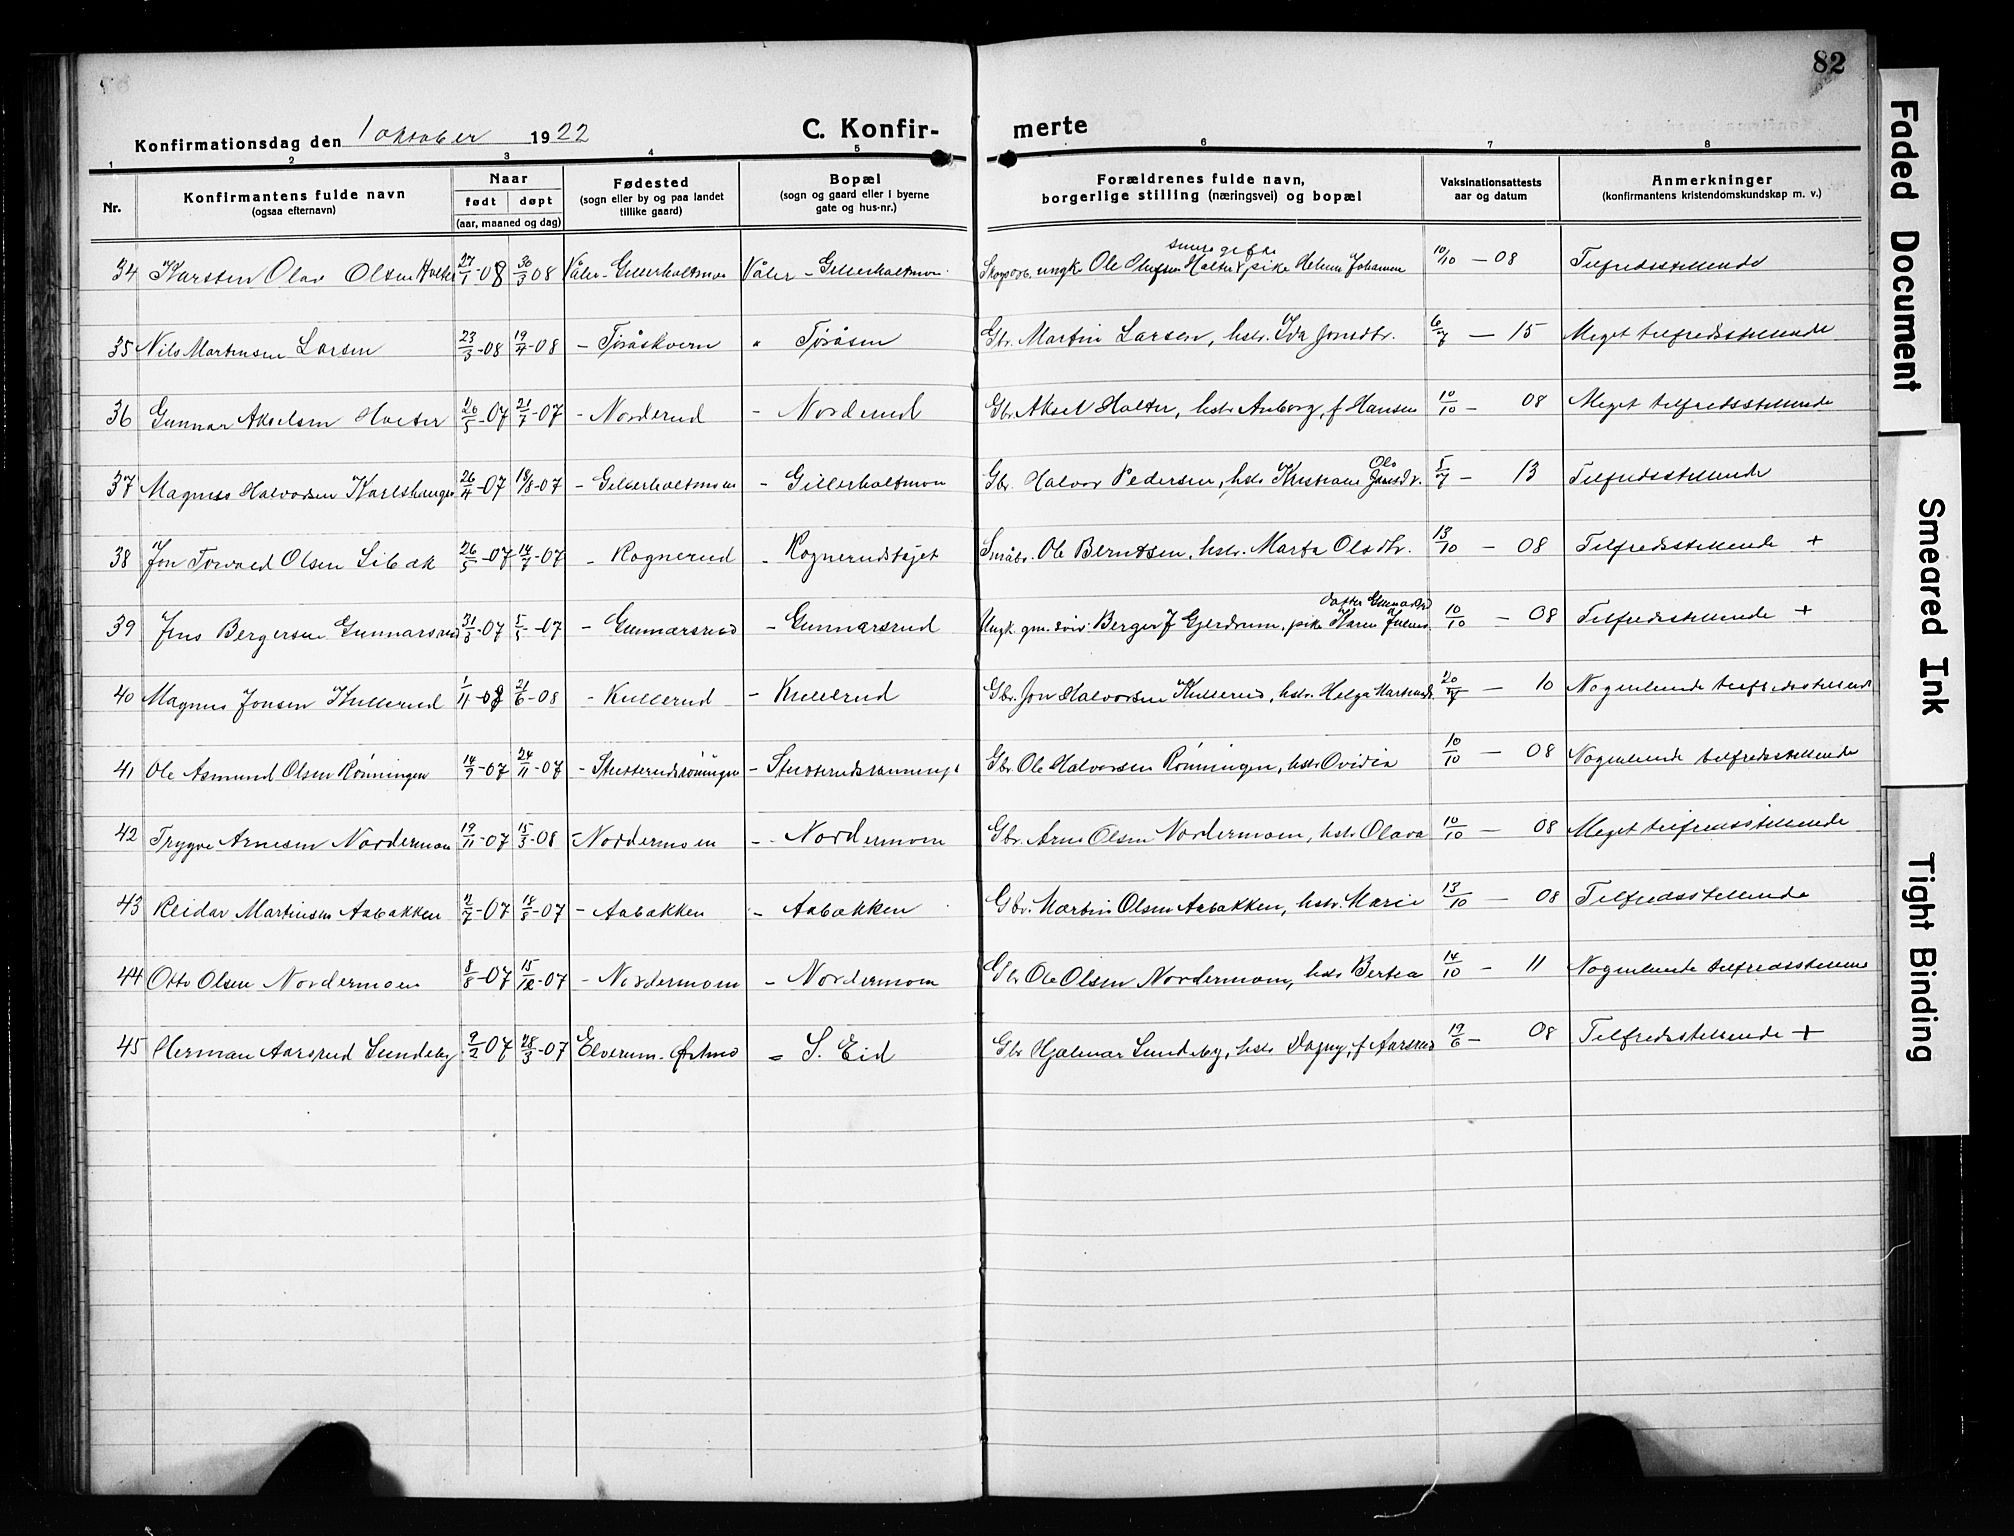 82
Konfirmationsdag den 1 oktober 1922 C. Konfir- merte
1 2 3 4 5 6 7 8
Nr. Konfirmantens fulde navn (ogsaa efternavn) Naar født døpt (aar, maaned og dag) Fødested (sogn eller by og paa landet tillike gaard) Bopæl (sogn og gaard eller i byerne gate og hus-nr.) Forældrenes fulde navn, borgerlige stilling (næringsvei) og bopæl Vaksinationsattests aar og datum Anmerkninger (konfirmantens kristendomskundskap m. v.)
34 Karsten Olav Olsen Holter 27/1-08 30/3 08 Våler - Gillerholtmoen Våler - Gillerholtmoen Skogsarb. ungk. Ole Olufsen Holter & pike Helene Johansen 10/10 - 08 Tilfredsstillende
35 Nils Martinsen Larsen 23/3-08 19/4-08 - Tjråskvern " Tjråsen Gbr. Martin Larsen, hstr. Ida Jonsdtr. 6/7 - 15 Meget tilfredsstillende
36 Gunnar Akselsen Holter 20/5-07 21/7-07 - Norderud - Norderud Gbr. Aksel Holter, hstr Anborg, f Hansen 10/10 - 08 Meget tilfredsstillende
37 Magnus Halvorsen Karlshaugen 26/4-07 18/8-07 - Gillerholtmoen - Gillerholtmoen Gbr. Halvor Pedersen, hstr Kristiane 5/7 - 13 Tilfredsstillende
38 Jon Torvald Olsen Libak 26/5-07 14/7-07 - Rognerud - Rognerudstajet Småbr. Ole Berntsen, hstr. Marta Olsdtr. 13/10 - 08 Tilfredsstillende +
39 Jens Bergersen Gunnarsrud 31/3-07 5/5-07 - Gunnarsrud - Gunnarsrud Ungk. Berger J Gjerdrum, pike Karen 10/10 - 08 Tilfredsstillende +
40 Magnus Jonsen Kullerud 1/11-07 21/6-08 - Kullerud - Kullerud Gbr. Jon Halvorsen Kullerud, hstr. Helga Martinsd. 20/7 - 10 Nogenlunde tilfredsstillende
41 Ole Asmund Olsen Rønningen 14/9-07 24/11-07 - Stutterudrønningen - Stutterudrønningen Gbr. Ole Halvorsen Rønningen, hstr Ovidia 10/10 - 08 Nogenlunde tilfredsstillende
42 Trygve Arnesen Nordermoen 19/11-07 15/3-08 - Nordermoen - Nordermoen Gbr. Arne Olsen Nordermoen, hstr Olava 10/10 - 08 Meget tilfredsstillende
43 Reidar Martinsen Aabakken 2/7-07 18/8-07 - Aabakken - Aabakken Gbr. Martin Olsen Aabakken, hstr. Marie 13/10 - 08 Tilfredsstillende
44 Otto Olsen Nordermoen 8/8-07 15/12-07 - Nordermoen - Nordermoen Gbr Ole Olsen Nordermoen, hstr Bertea 14/10 - 11 Nogenlunde tilfredsstillende
45 Herman Aarsrud Sundeby 9/2 07 28/3-07 Elverum - - S. Eid Gbr Hjalmar Sundeby, hstr Dagny, f Aarsrud 19/6 - 08 Tilfredsstillende +
Faded Document
Smeared Ink
Tight Binding